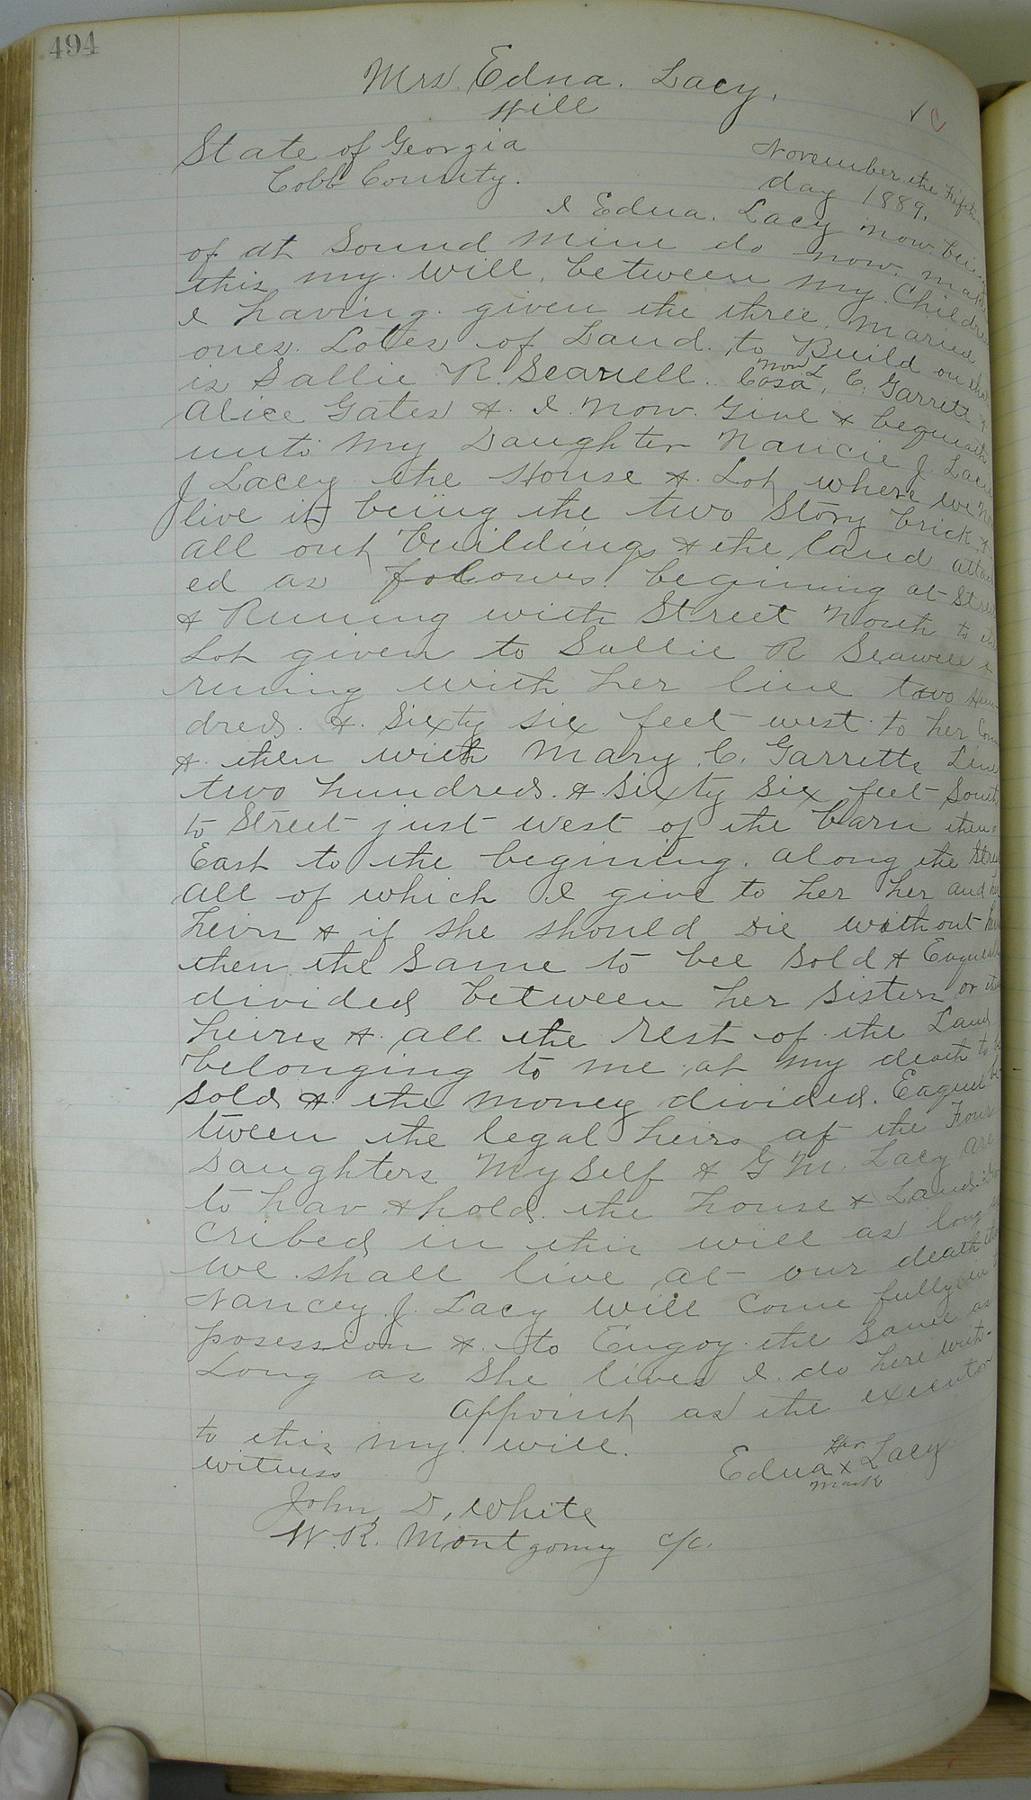 494
Mrs. Edna. Lacy.
Will
State of Georgia
Cobb County.
November the
day 1889.
I Edna. Lacy now being
of at Sound mine do now make
this my will, between my Children
I having given the three Maried
ones. Lotes of Land. to Build on
is Sallie R. Seawell. C. Garrett &
Alice Gates & I now Give & bequeath
unto my Daughter Nancie J. Lacy
J Lacey the House & Lot where we
live in being the two Story brick &
all out buildings & the land
ed as folowes begining at Street
& Runing with Street North to
Lot given to Sallie R Seawell &
runing with her line two Hun
dred & Sixty six feet west to her
& then with Mary C. Garretts Line
two hundred & Sixty Six feet South
to Street just west of the barn then
East to the begining. along the Street
all of which I give to her her and her
heirs & if she should Die without
then the Same to bee Sold & Eaquely
divided between her Sisters or
heires & all the rest of the Land
belonging to me at my death to
sold & the money divided. Eaquel be
tween the legal heirs of the Four
Daughters My Self & G M. Lacy are
to hav & hold the house & Land
cribed in this will as long
we shall live at our death
Nancey J. Lacy will Come fully in
posession & to Engoy the Same as
Long as She lives I do here with
appoint as the executor
to this my will.
witness
Edna x Lacy
Her
mark
John D. White
W. R. Montgomy c/c.